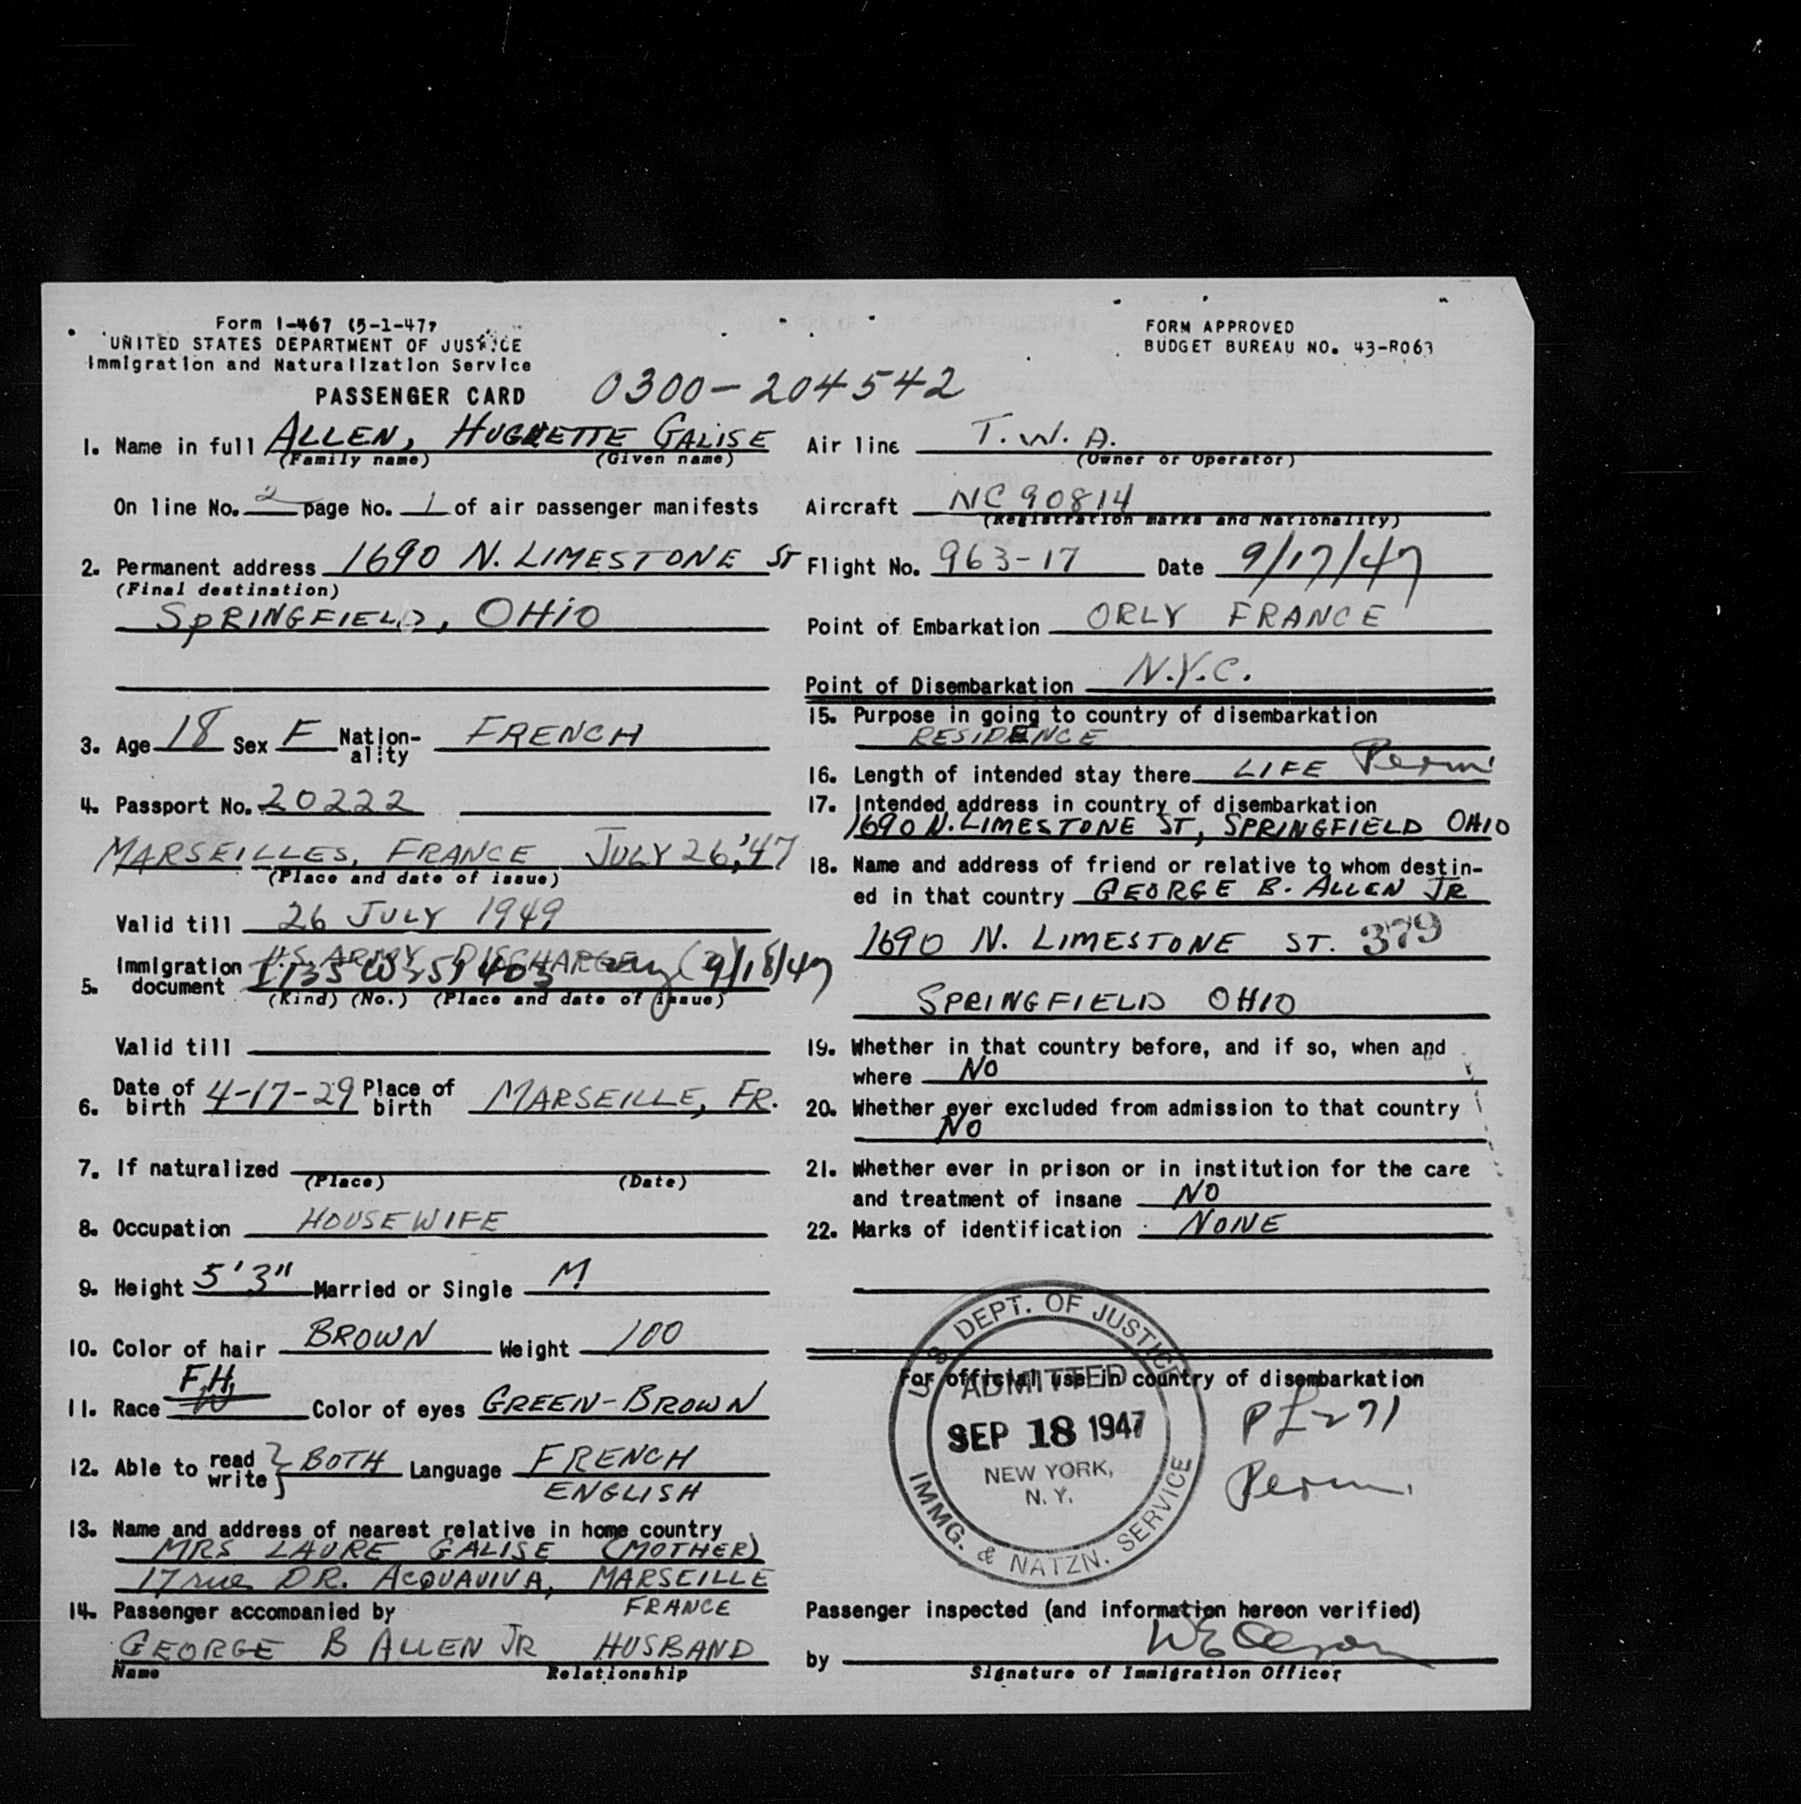 Form I-467 (5-1-47)
UNITED STATES DEPARTMENT OF JUSTICE
Immigration and Naturalization Service
PASSENGER CARD
0300-204542
FORM APPROVED
BUDGET BUREAU NO. 43-R063
1. Name in full ALLEN, HUGUETTE GALISE
(Family name) (Given name)
On line No. 2 page No. 1 of air passenger manifests
2. Permanent address 1690 N. LIMESTONE ST
(Final destination)
SPRINGFIELD, OHIO
3. Age 18 Sex F Nation-ality FRENCH
4. Passport No. 20222
MARSEILLES, FRANCE JULY 26,'47
(Place and date of issue)
Valid till 26 JULY 1949
5. Immigration document U.S. ARMY DISCHARGE
(9/18/47
(Kind) (No.) (Place and date of issue)
Valid till
6. Date of birth 4-17-29 Place of birth MARSEILLE, FR.
7. If naturalized
(Place) (Date)
8. Occupation HOUSEWIFE
9. Height 5'3" Married or Single M
10. Color of hair BROWN Weight 100
11. Race F.H. W Color of eyes GREEN-BROWN
12. Able to read write } BOTH Language FRENCH
ENGLISH
13. Name and address of nearest relative in home country
MRS LAURE GALISE (MOTHER)
17 rue DR. ACQUAVIVA, MARSEILLE
FRANCE
14. Passenger accompanied by
GEORGE B ALLEN JR HUSBAND
Name Relationship
Air line T.W.A.
(Owner or Operator)
Aircraft NC 90814
(Registration marks and Nationality)
Flight No. 963-17 Date 9/17/47
Point of Embarkation ORLY FRANCE
Point of Disembarkation N.Y.C.
15. Purpose in going to country of disembarkation
RESIDENCE
16. Length of intended stay there LIFE Perm
17. Intended address in country of disembarkation
1690 N. LIMESTONE ST, SPRINGFIELD OHIO
18. Name and address of friend or relative to whom destin-
ed in that country GEORGE B. ALLEN JR
1690 N. LIMESTONE ST. 379
SPRINGFIELD OHIO
19. Whether in that country before, and if so, when and
where NO
20. Whether ever excluded from admission to that country
NO
21. Whether ever in prison or in institution for the care
and treatment of insane NO
22. Marks of identification NONE
For official use in country of disembarkation
U.S. DEPT. OF JUSTICE
ADMITTED
SEP 18 1947
NEW YORK,
N. Y.
IMMG. & NATZN. SERVICE
PL 271
Perm.
Passenger inspected (and information hereon verified)
by
Signature of Immigration Officer